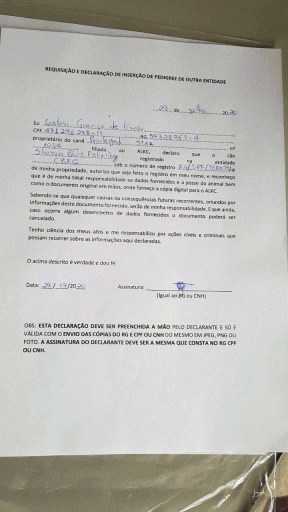 REQUISIÇÃO E DECLARAÇÃO DE INSERÇÃO DE PEDIGREE DE OUTRA ENTIDADE
de julho 20
Eu
CPF RG
proprietário do canil nº
filiado ao ALKC, declaro que o cão
registrado na entidade
sob o número de registro
de minha propriedade, autorizo que seja feito o registro em meu nome, e reconheço
que é de minha total responsabilidade os dados fornecidos e a posse do animal bem
como o documento original em mãos, onde forneço a cópia digital para o ALKC.
Sabendo-se que quaisquer causas ou consequências futuras recorrentes, oriundos por
informações deste documento fornecido, serão de minha responsabilidade. E que ainda,
caso ocorra algum desencontro de dados fornecidos o documento poderá ser
cancelado.
Tenho ciência dos meus atos e me responsabilizo por ações cíveis e criminais que
possam recorrer sobre as informações aqui declaradas.
O acima descrito é verdade e dou fé
Data: Assinatura
(Igual ao RG ou CNH)
OBS: ESTA DECLARAÇÃO DEVE SER PREENCHIDA A MÃO PELO DECLARANTE E SÓ É
VÁLIDA COM O ENVIO DAS CÓPIAS DO RG E CPF OU CNH DO MESMO EM JPEG, PNG OU
FOTO. A ASSINATURA DO DECLARANTE DEVE SER A MESMA QUE CONSTA NO RG CPF
OU CNH.